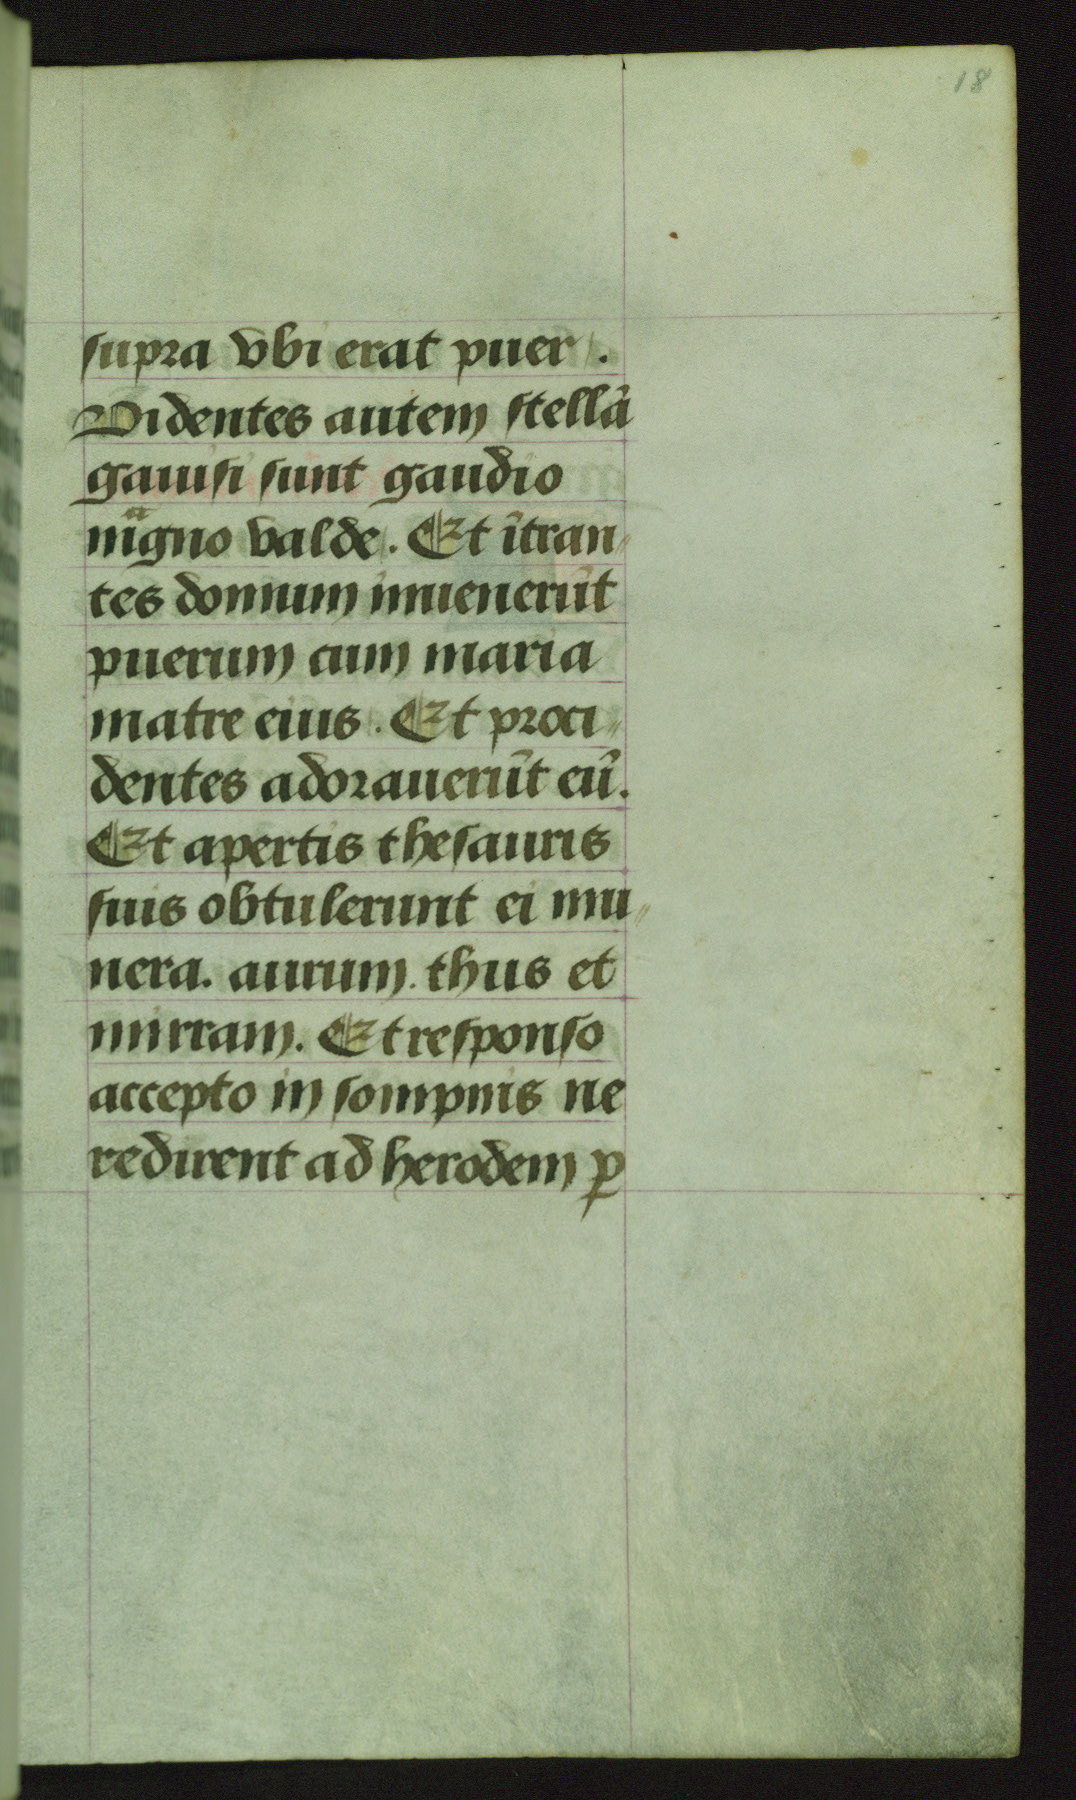 18
supra vbi erat puer.
Videntes autem stellā
gauisi sunt gaudio
magno valde. Et ītran
tes domum inuenerūt
puerum cum maria
matre eius. Et proci
dentes adorauerūt eū.
Et apertis thesauris
suis obtulerunt ei mu
nera. aurum. thus et
mirram. Et responso
accepto in sompnis ne
redirent ad herodem ꝑ